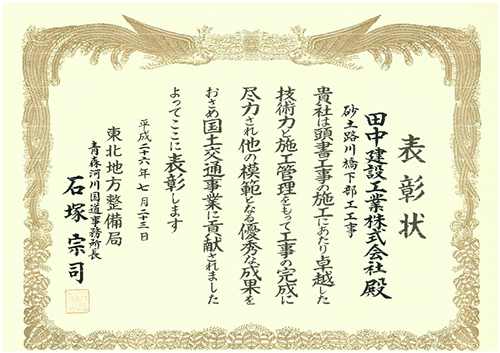 表彰状
田中建設工業株式会社殿
砂土路川橋下部工工事
貴社は頭書工事の施工にあたり卓越した
技術力と施工管理をもって工事の完成に
尽力され他の模範となる優秀な成果を
おさめ国土交通事業に貢献されました
よってここに表彰します
平成二十六年七月二十三日
東北地方整備局
青森河川国道事務所長
石塚宗司